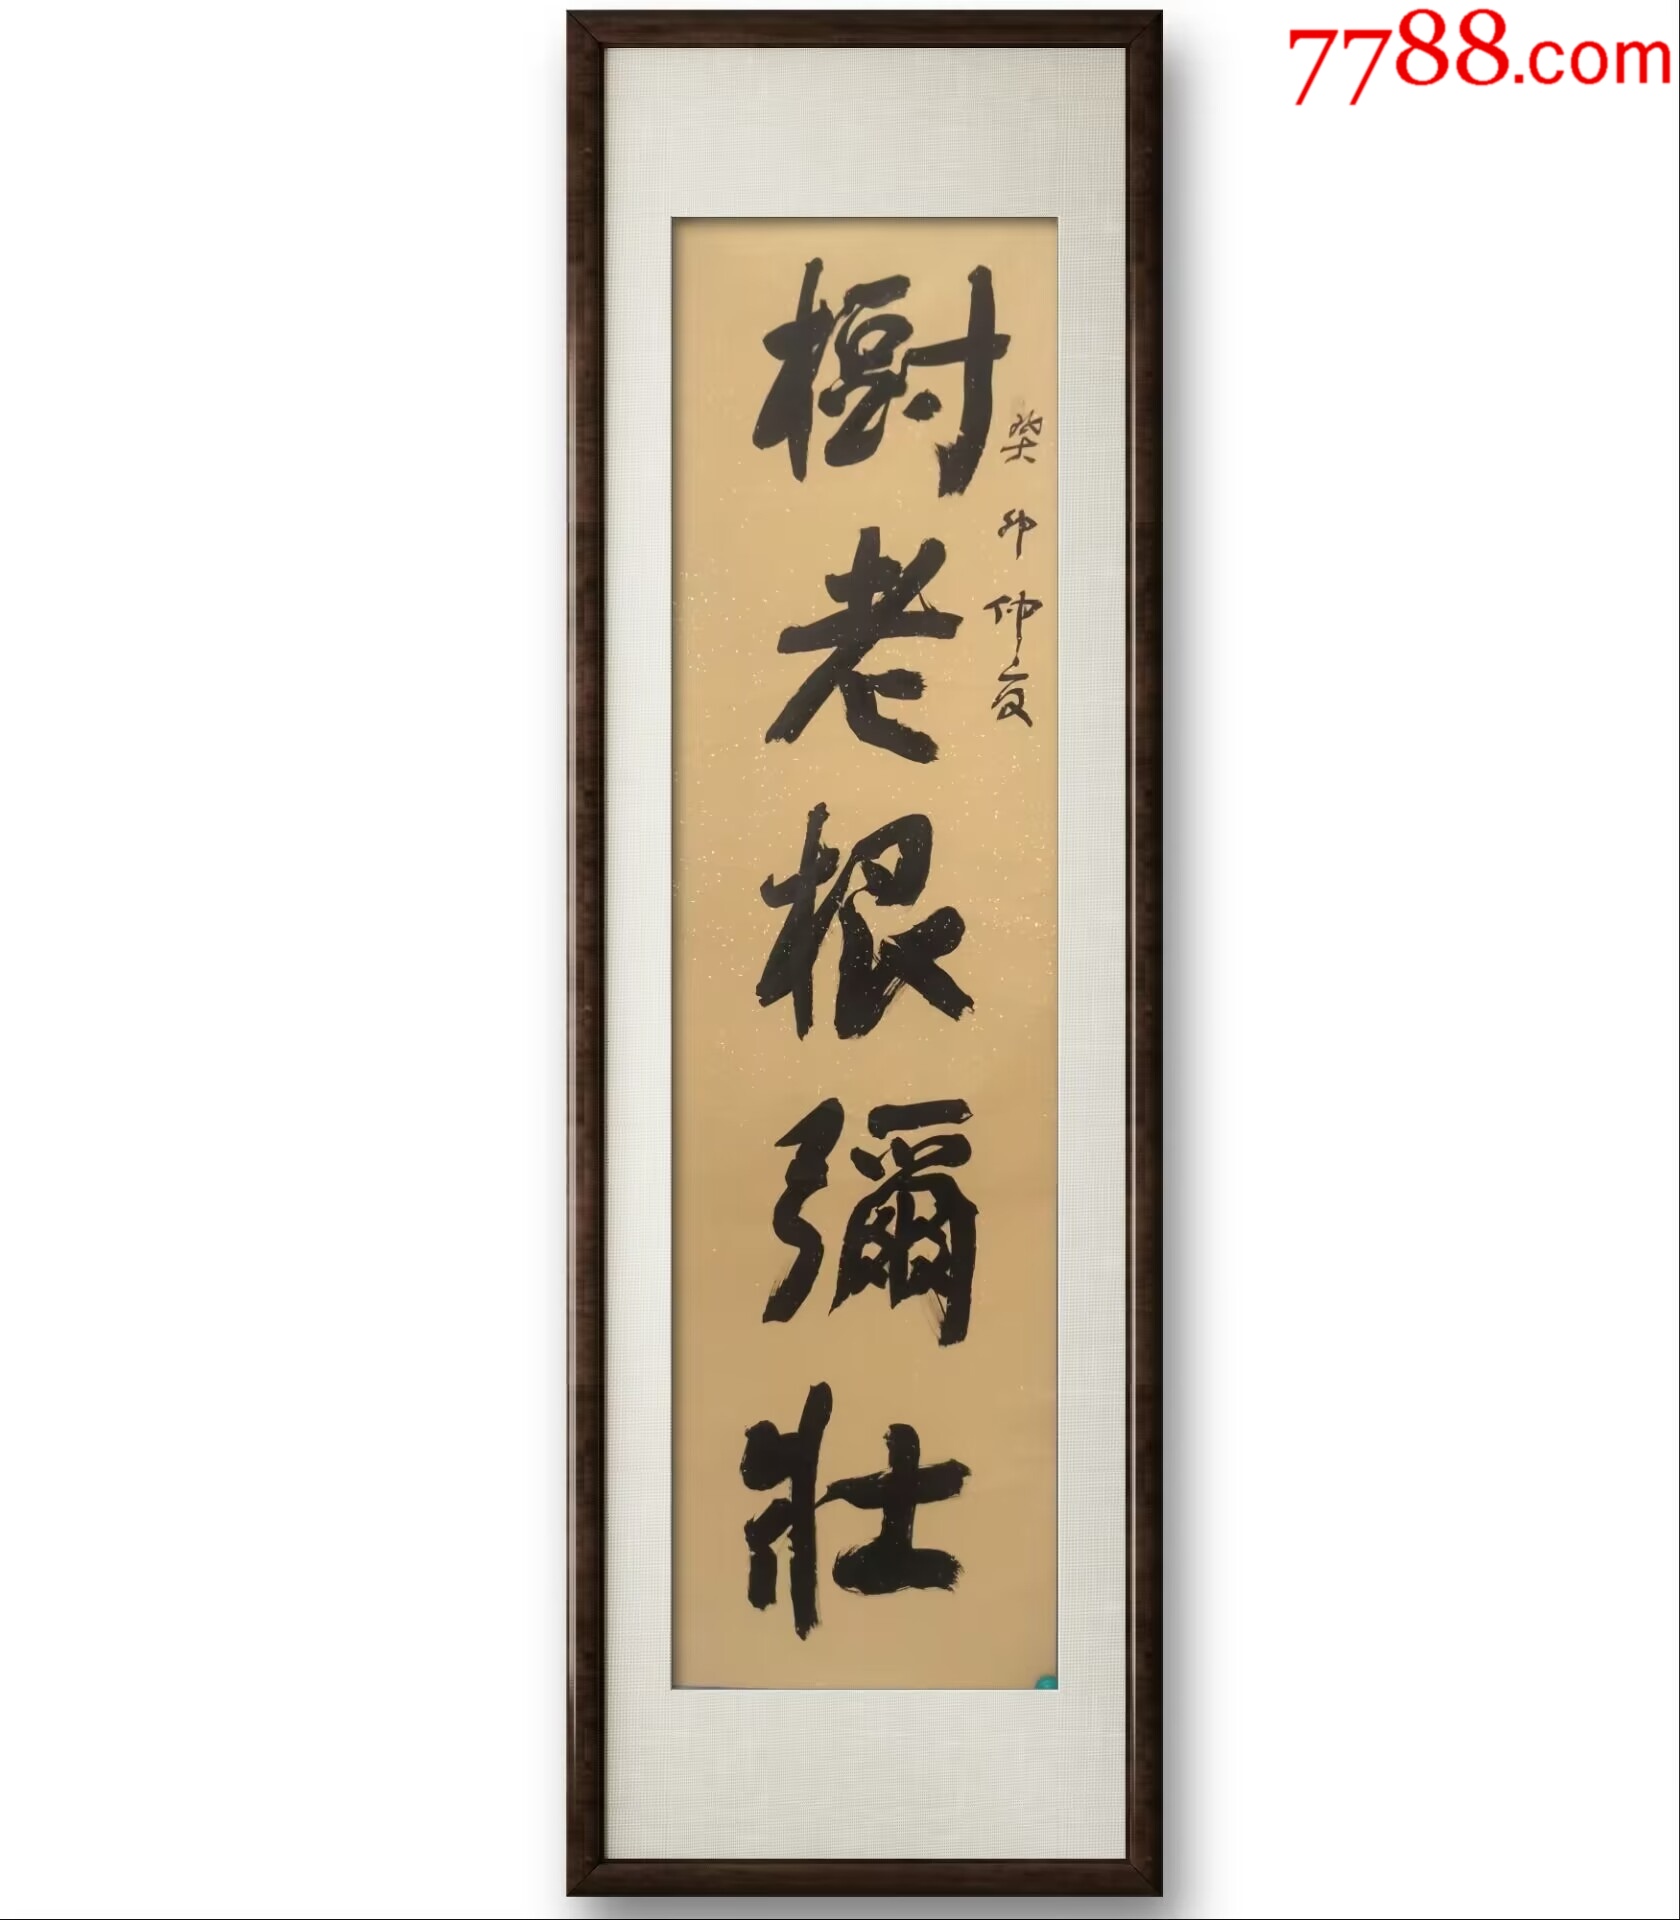 7788.com
癸卯仲夏
樹老根彌壯